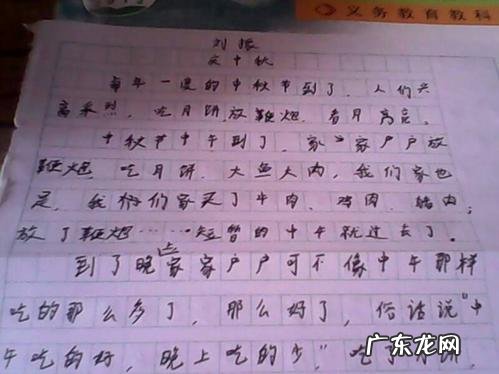 义务教育教科
刘振
文中秋
每年一度的中秋节到了，人们兴
高采烈，吃月饼放鞭炮，看月亮。
中秋节中午到了，家家户户放
鞭炮，吃月饼，大鱼大肉，我们家也
是，我们家买了牛肉、鸡肉、猪肉；
放了鞭炮……短暂的中午就过去了。
到了晚上家家户户可不像中午那样
吃的那么多了，那么好了，俗话说“中
午吃的好，晚上吃的少”吃了月饼，
广东龙网